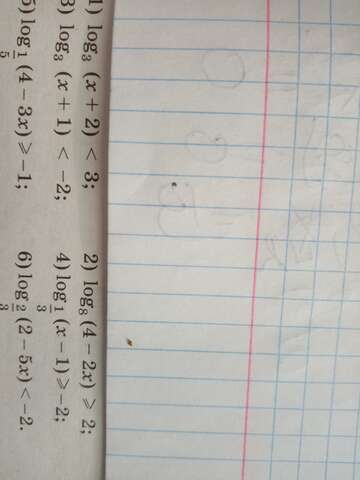 1) log₃ (x + 2) < 3; 2) log₈ (4 − 2x) ⩾ 2;
3) log₃ (x + 1) < −2; 4) log_{1/3} (x − 1) ⩾ −2;
5) log_{1/5} (4 − 3x) ⩾ −1; 6) log_{2/3} (2 − 5x) < −2.